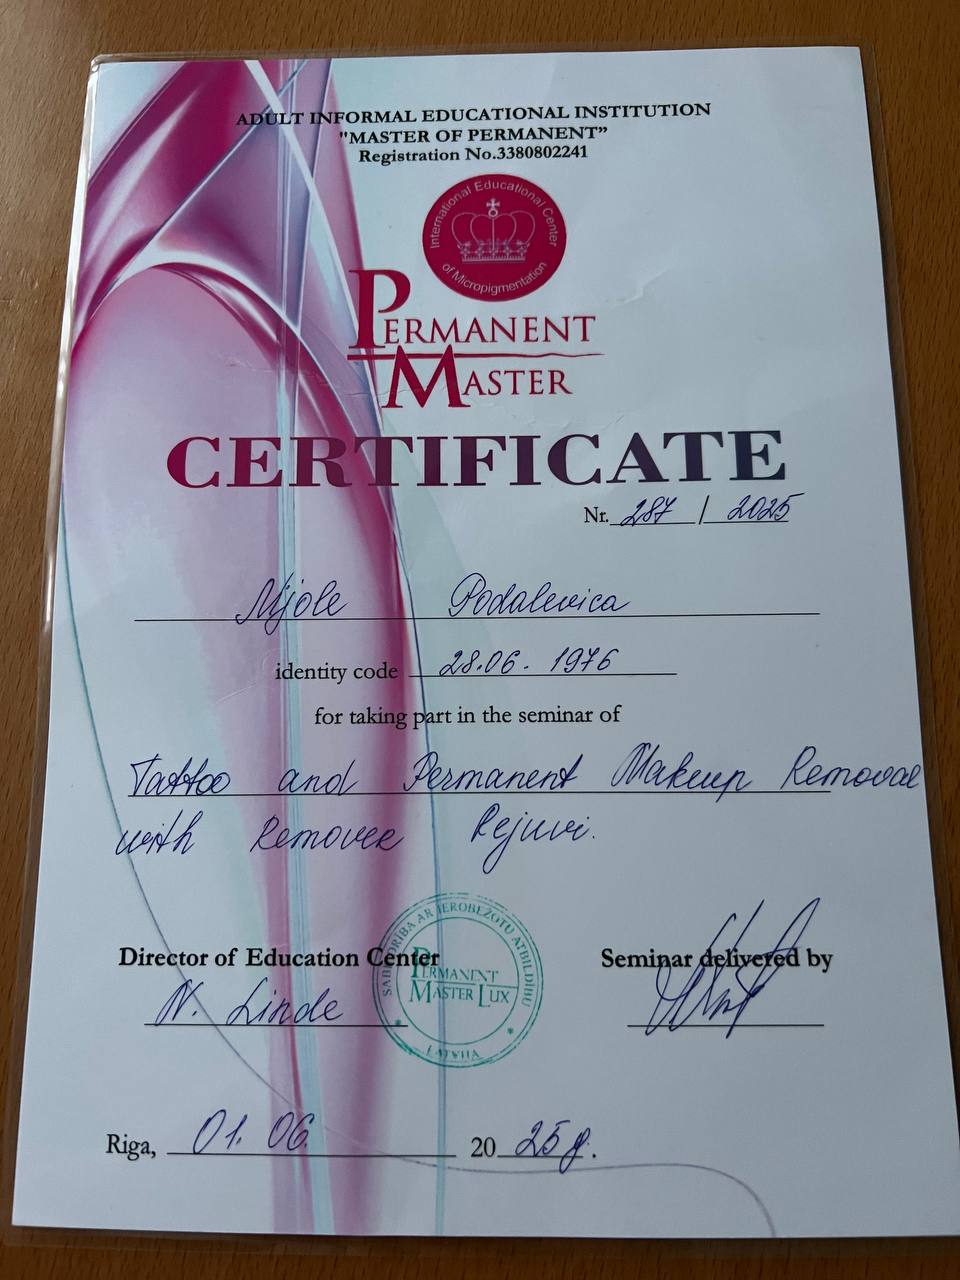 ADULT INFORMAL EDUCATIONAL INSTITUTION
"MASTER OF PERMANENT”
Registration No.3380802241
International Educational Center
of Micropigmentation
PERMANENT
MASTER
CERTIFICATE
Nr. 287 / 2025
Nijole Podalevica
identity code 28.06. 1976
for taking part in the seminar of
Tattoo and Permanent Makeup Removal
with Remover Rejuvi.
Director of Education Center
Seminar delivered by
N. Linde
SABIEDRĪBA AR IEROBEŽOTU ATBILDĪBU
PERMANENT
MASTER LUX
LATVIJA
Riga, 01. 06. 2025 g.